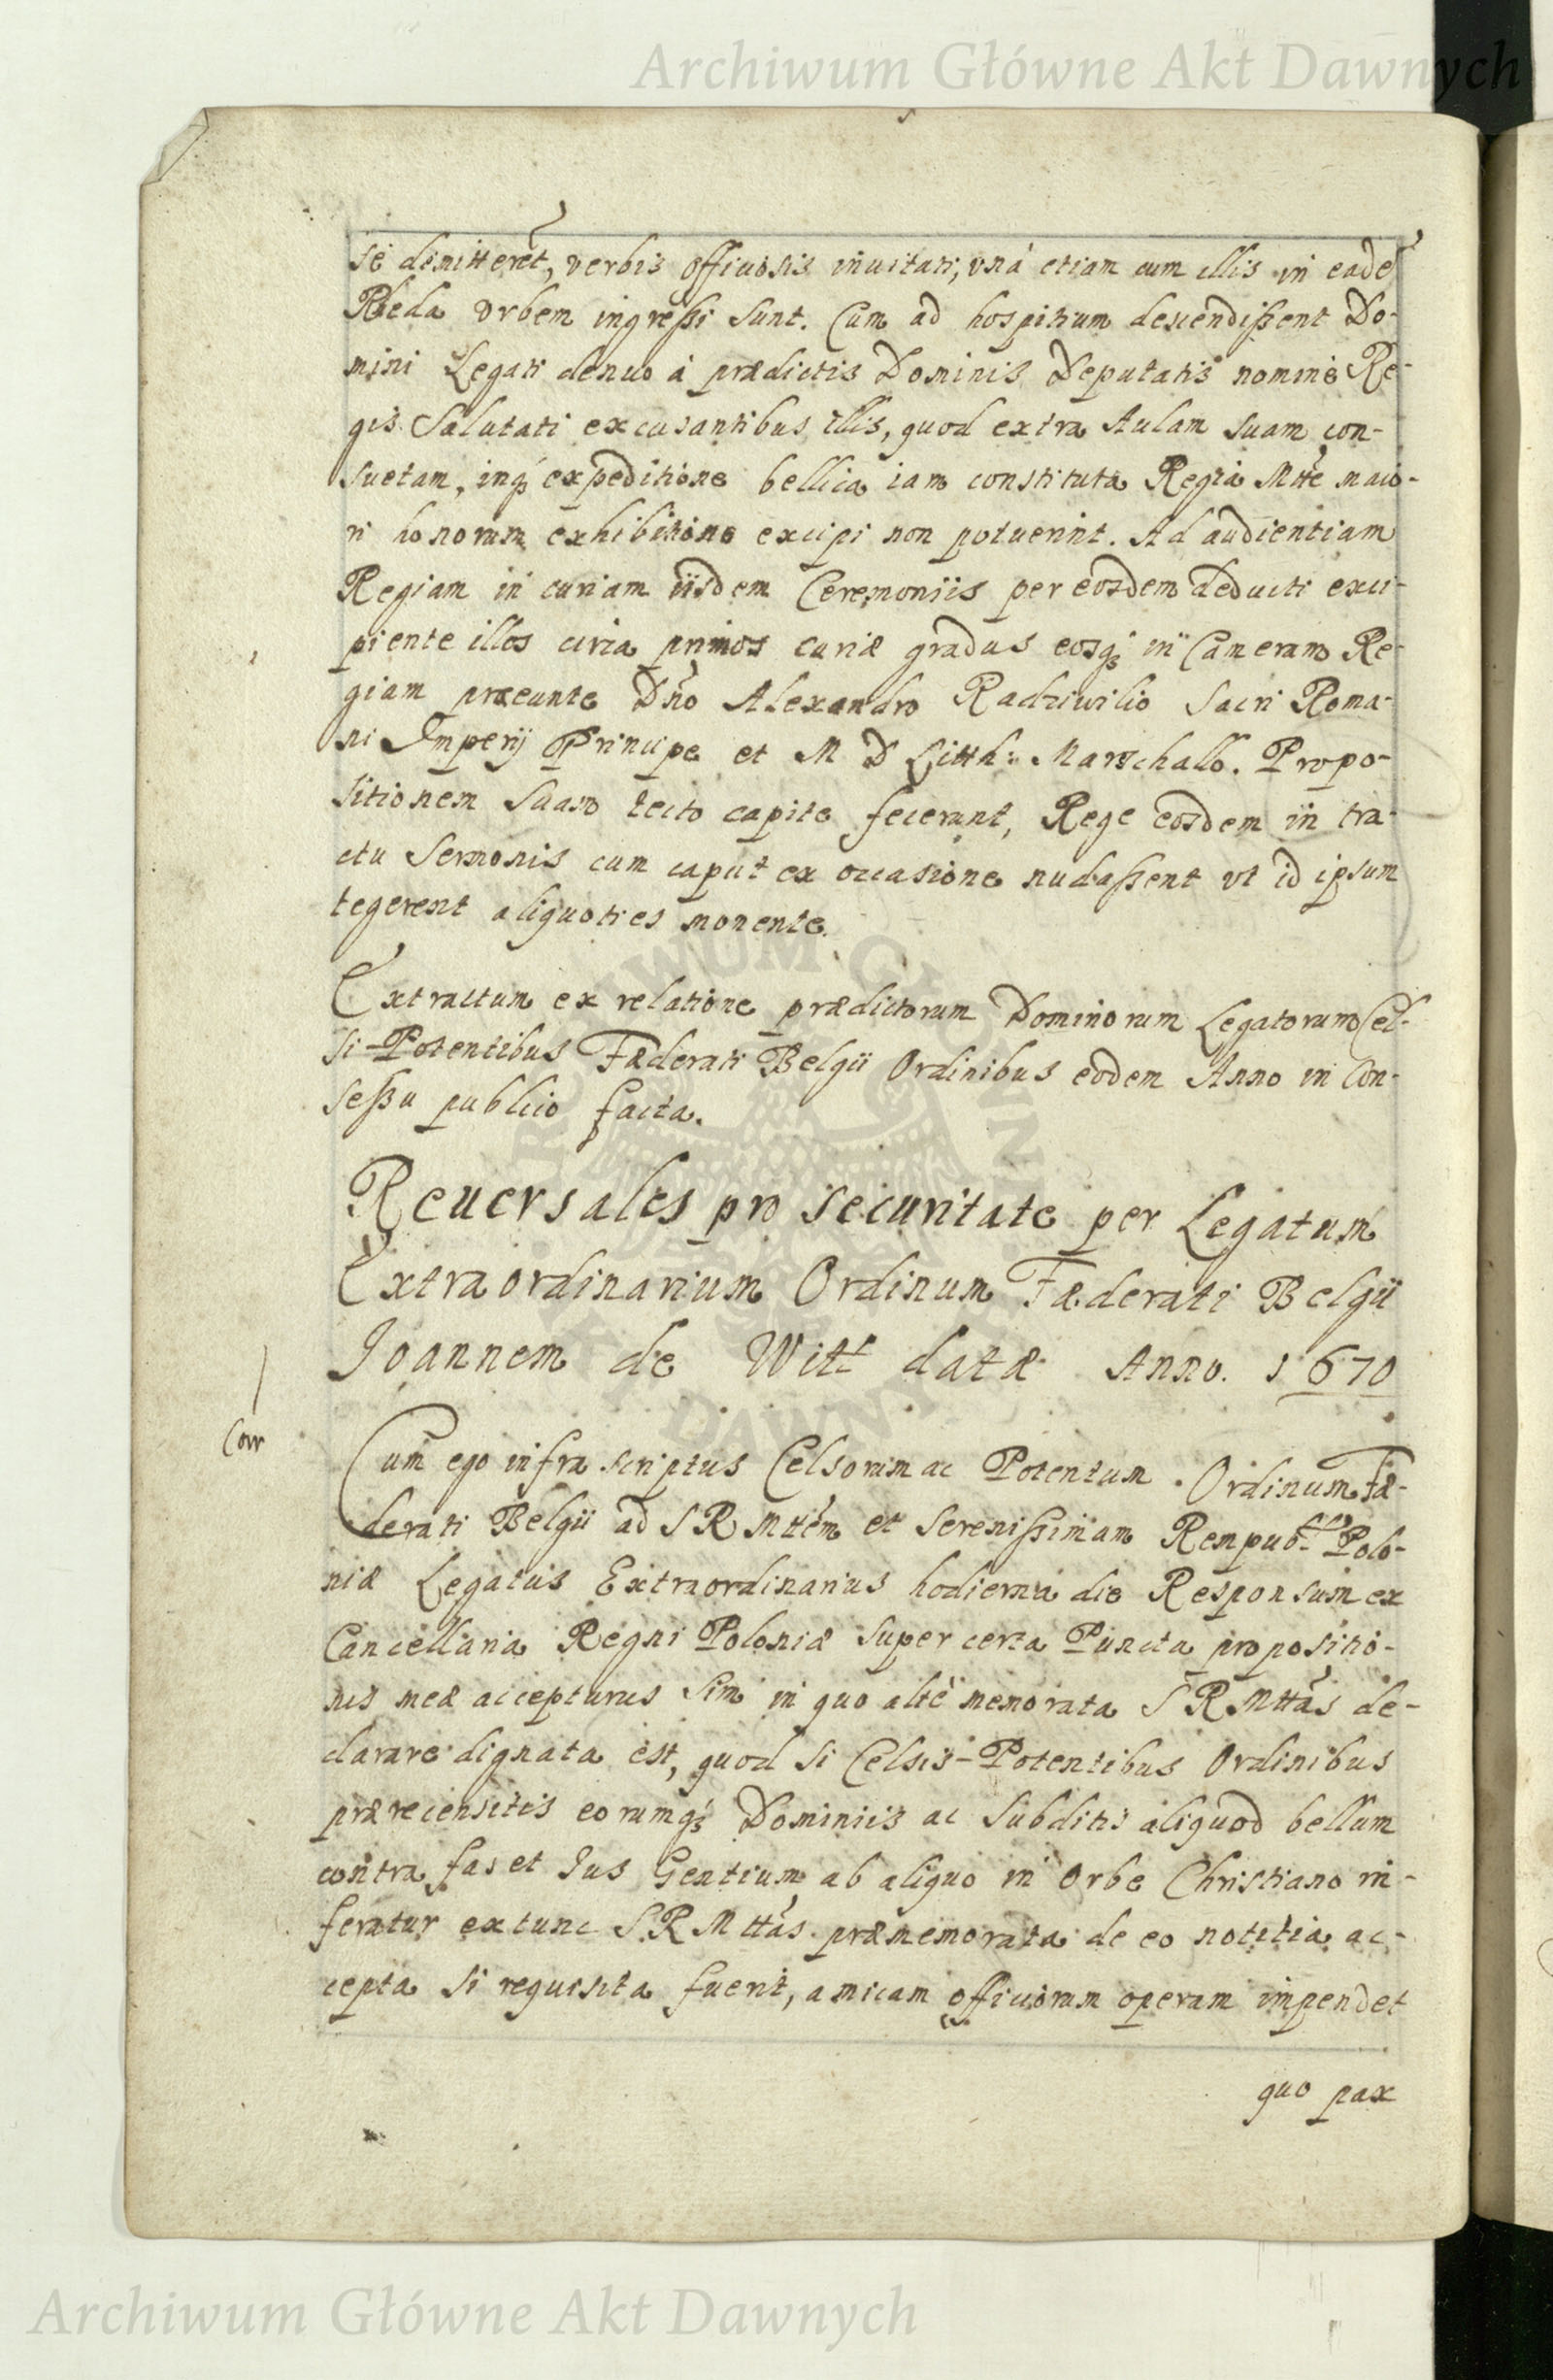 Archiwum Główne Akt Dawnych
se dimitteret, verbis officiosis inuitati, vna etiam cum illis in eadē
Rheda vrbem ingreſsi sunt. Cum ad hospitium descendiſsent Do-
mini Legati denuo à prædictis Dominis Deputatis nomine Re-
gis Salutati excusantibus illis, quod extra Aulam suam con-
suetam, inq́ expeditione bellica iam constituta Regia Mtte maio-
ri honorum exhibitione excipi non potuerint. Ad audientiam
Regiam in curiam iisdem Ceremoniis per eosdem deducti exci-
piente illos circa primos curiæ gradus eosq́ in Cameram Re-
giam præeunte Dno Alexandro Radziwilio Sacri Roma-
ni Imperij Principe et M D Litth: Marschallo. Propo-
sitionem suam tecto capite fecerunt, Rege eosdem in tra-
ctu Sermonis cum caput ex occasione nudaſsent vt id ipsum
tegerent aliquoties monente.
Extractum ex relatione prædictorum Dominorum Legatorum Cel-
si-Potentibus Fæderati Belgii Ordinibus eodem Anno in Con-
seſsu publico facta.
Reuersales pro securitate per Legatum
Extraordinarium Ordinum Fæderati Belgii
Joannem de Witt datæ Anno. 1670
Corr
Cum ego infra scriptus Celsorum ac Potentum Ordinum Fæ-
derati Belgii ad S R Mttem et Serenißimam Rempub. Polo-
niæ Legatus Extraordinarius hodierna die Responsum ex
Cancellaria Regni Poloniæ super certa Puncta propositio-
nis meæ accepturus sim in quo altè memorata S R Mttas de-
clarare dignata est, quod si Celsis-Potentibus Ordinibus
prærecensitis eorumq́ Dominiis ac Subditis aliquod bellum
contra fas et Jus Gentium ab aliquo in Orbe Christiano in-
feratur extunc S R Mttas præmemorata de eo notitia ac-
cepta si requisita fuerit, amicam officiorum operam impendet
quo pax
Archiwum Główne Akt Dawnych